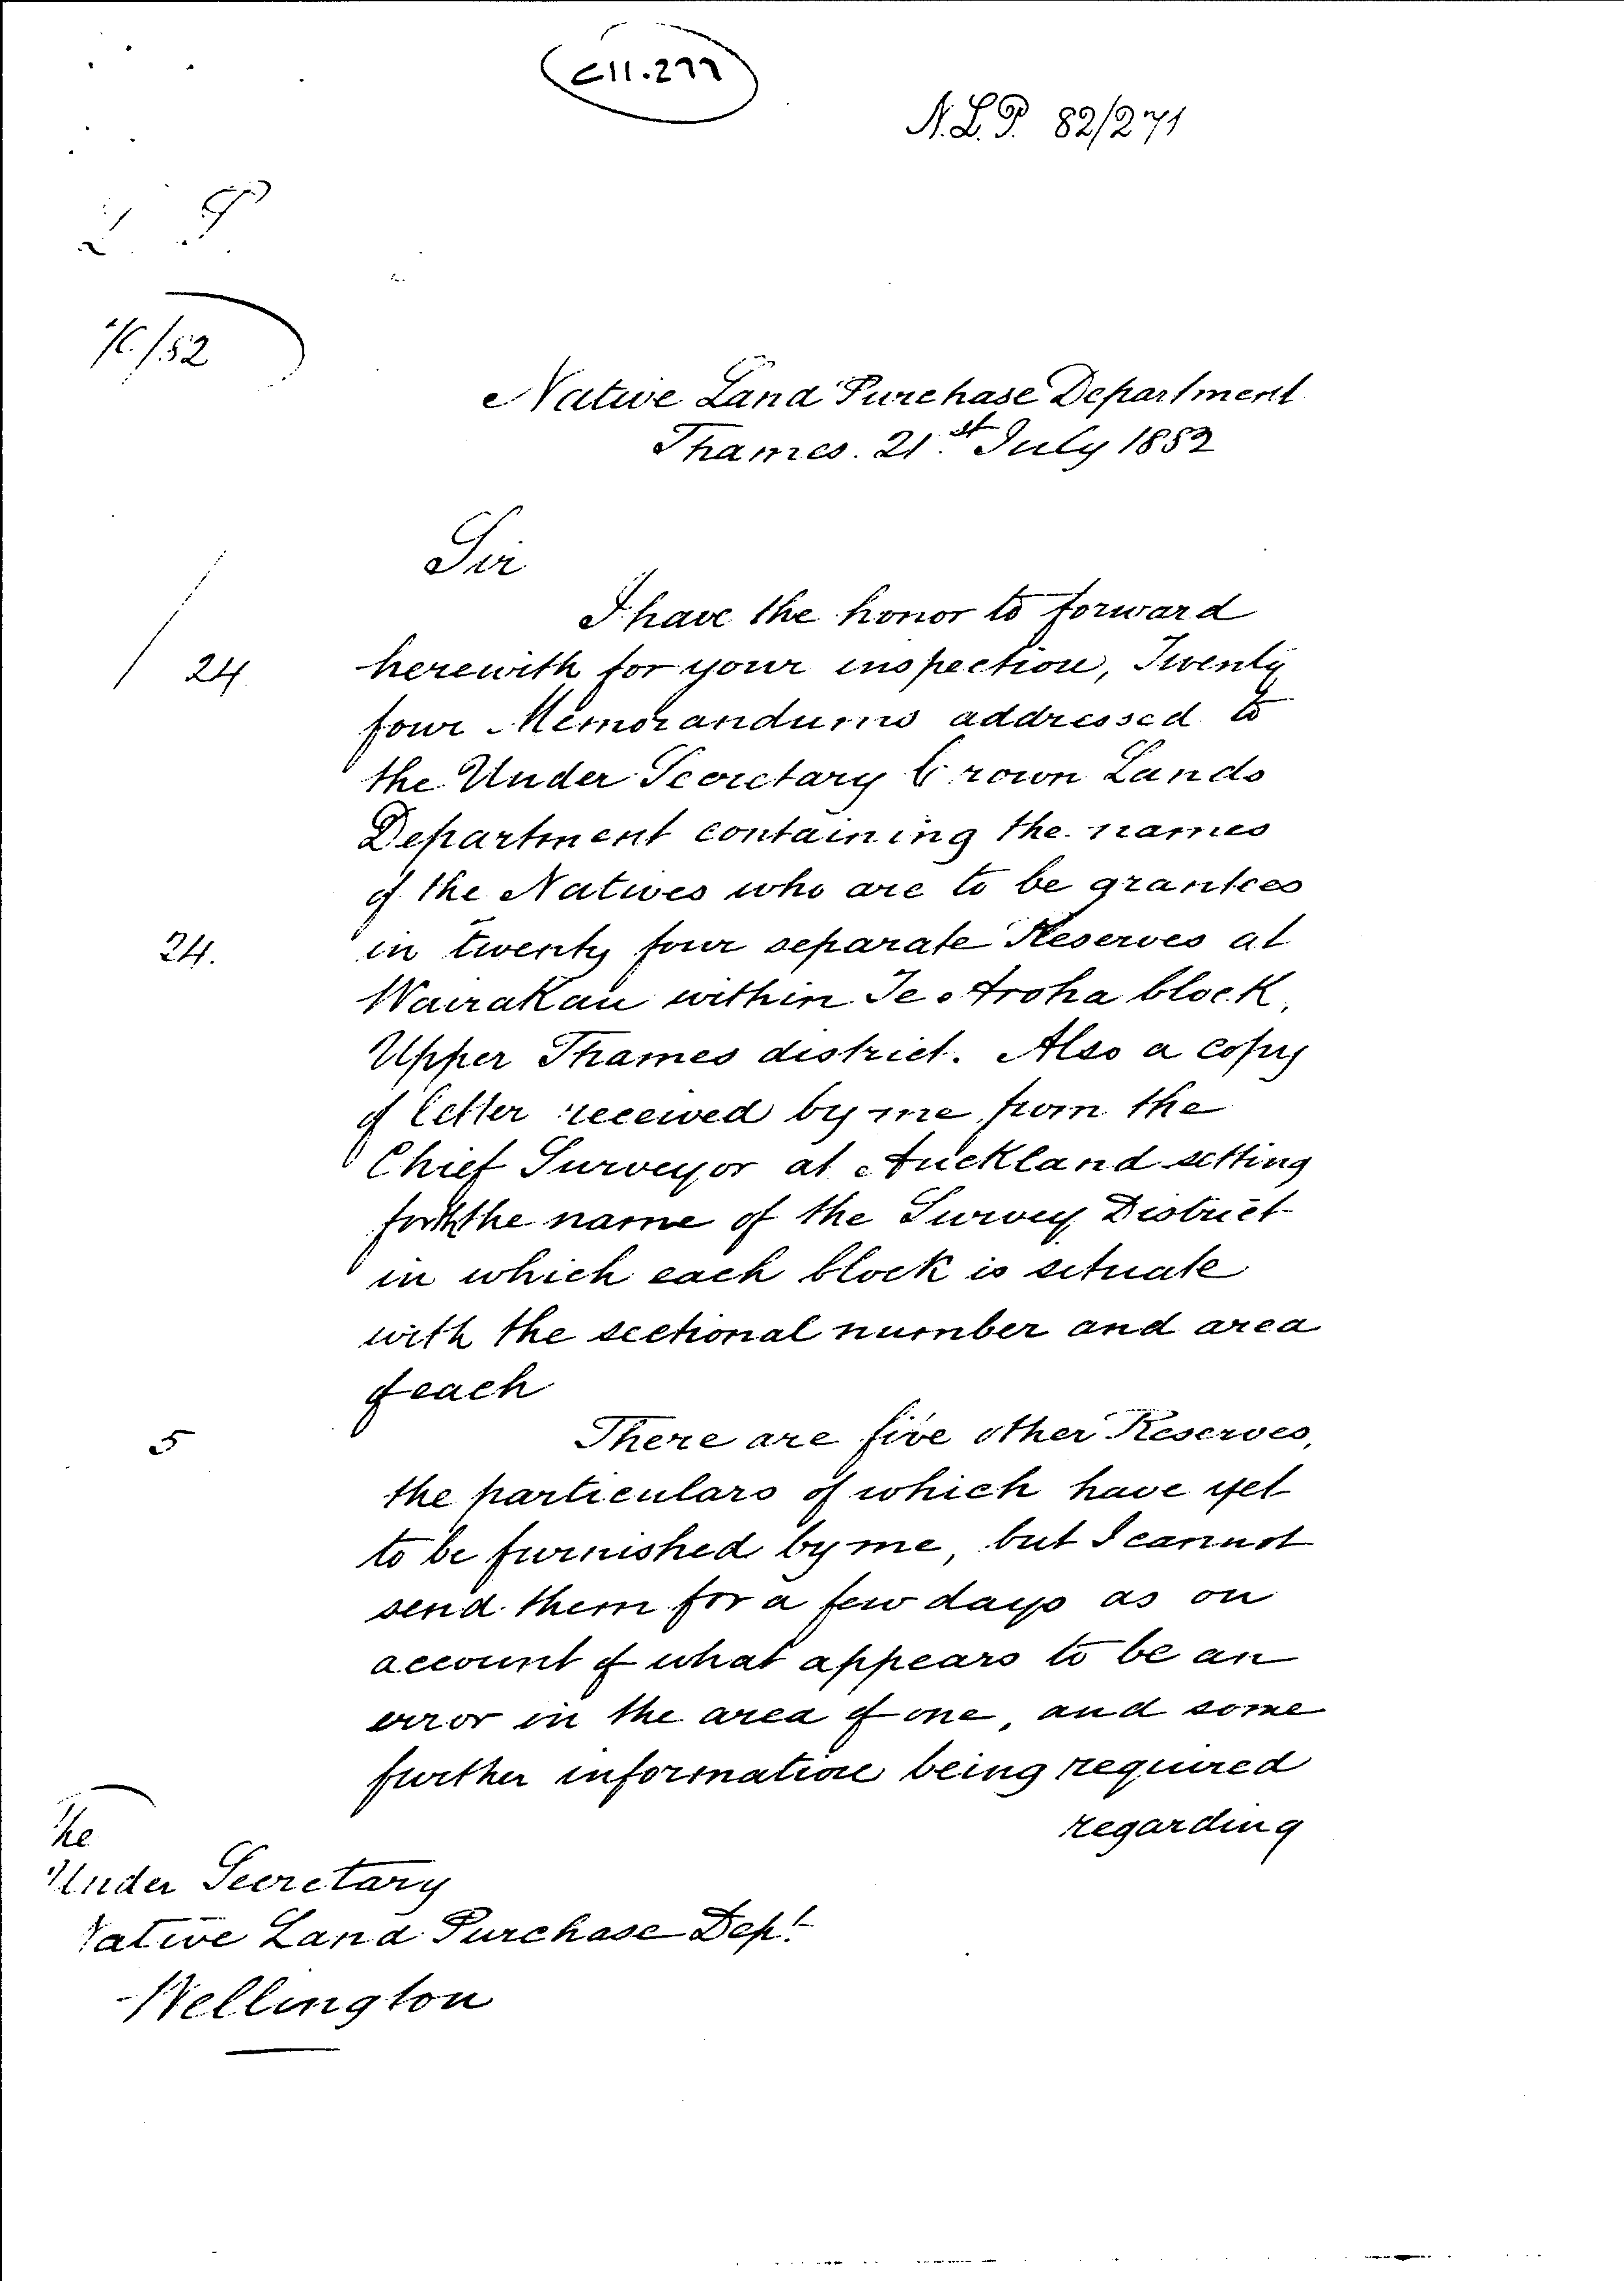 C11.277
N.L.P. 82/271
Native Land Purchase Department
Thames. 21st July 1882
Sir
I have the honor to forward
24. herewith for your inspection, Twenty
four Memorandums addressed to
the Under Secretary Crown Lands
Department containing the names
of the Natives who are to be grantees
24. in twenty four separate Reserves at
Wairakau within Te Aroha block,
Upper Thames district. Also a copy
of letter received by me from the
Chief Surveyor at Auckland setting
forth the name of the Survey District
in which each block is situate
with the sectional number and area
of each
5 There are five other Reserves,
the particulars of which have yet
to be furnished by me, but I cannot
send them for a few days as on
account of what appears to be an
error in the area of one, and some
further information being required
regarding
The
Under Secretary
Native Land Purchase Dept.
Wellington